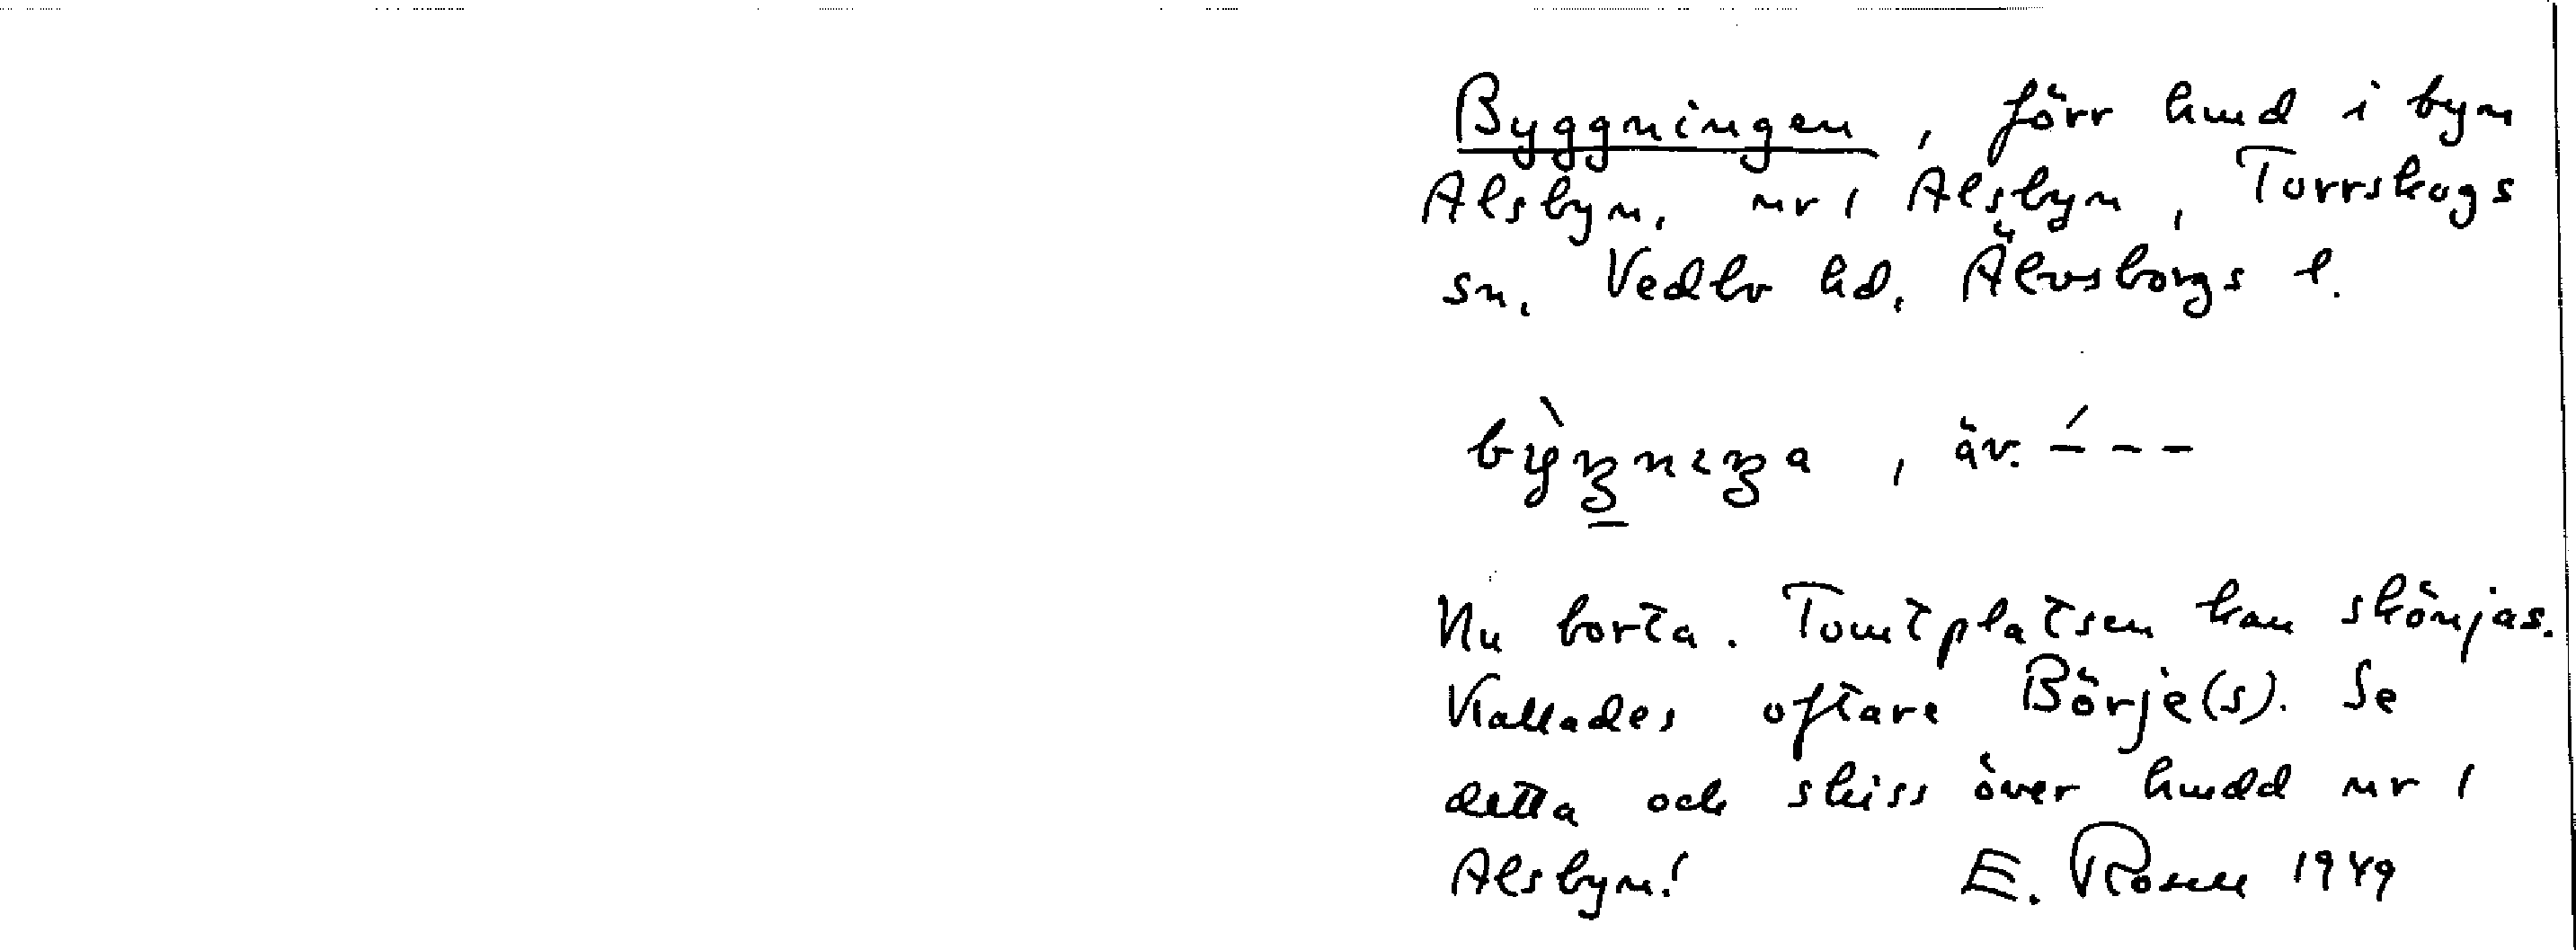 Byggningen, förr hmd i byn
Alsbyn, nr 1 Alsbyn, Torrskogs
sn, Vedbo hd, Älvsborgs l.
äv.
Nu borta. Tomtplatsen kan skönjas.
Kallades oftare Börje(s). Se
detta och skiss över hmdd nr 1
Alsbyn! E. Rosell 1949